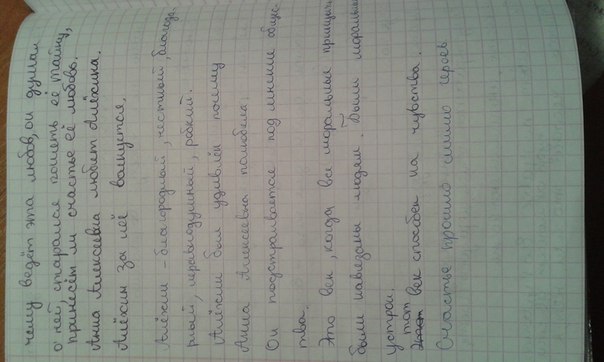 чему ведёт эта любовь, он думал
о ней, старался понять её тайну,
принесём ли счастье её любовь.
Анна Алексеевна любит Алёхина.
Алёхин за неё волнуется.
Алёхин – благородный, честный, благода
рный, неравнодушный, робкий.
Алёхин был удивлён почему
Анна Алексеевна полюбила.
Он подстраивается под мнение общес
тва.
Это век, когда все моральные принципы
были навязаны людям. Были моральные
устрои.
тот век способен на чувства.
Счастье прошло мимо героев